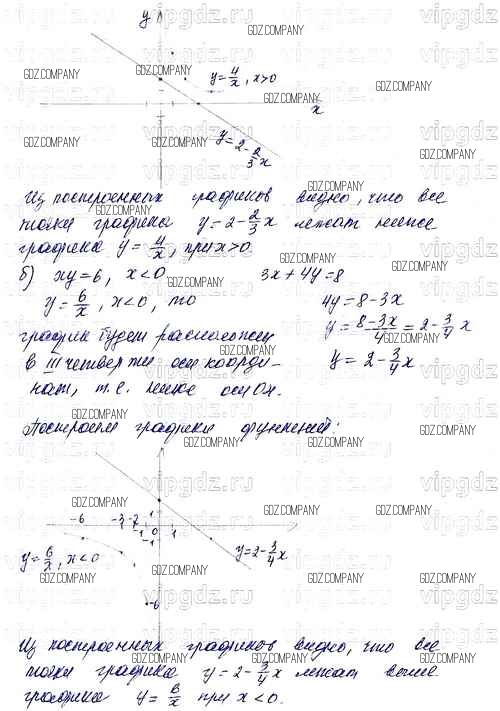 y
y = 4/x, x>0
x
y = 2 - 2/3 x
Из построенных графиков видно, что все
точки графика y = 2 - 2/3 x лежат ниже
графика y = 4/x, при x>0
б) xy = 6, x < 0
3x + 4y = 8
y = 6/x, x<0, то
4y = 8 - 3x
график будет расположен
y = (8 - 3x)/4 = 2 - 3/4 x
в III четверти оси коорди-
y = 2 - 3/4 x
нат, т.е. ниже оси Ox.
Построим графики функций:
-6 -3 -2 -1 0 1
1
-1
-6
y = 6/x, x<0
y = 2 - 3/4 x
Из построенных графиков видно, что все
точки графика y = 2 - 3/4 x лежат выше
графика y = 6/x при x < 0.
GDZ.COMPANY
vipgdz.ru